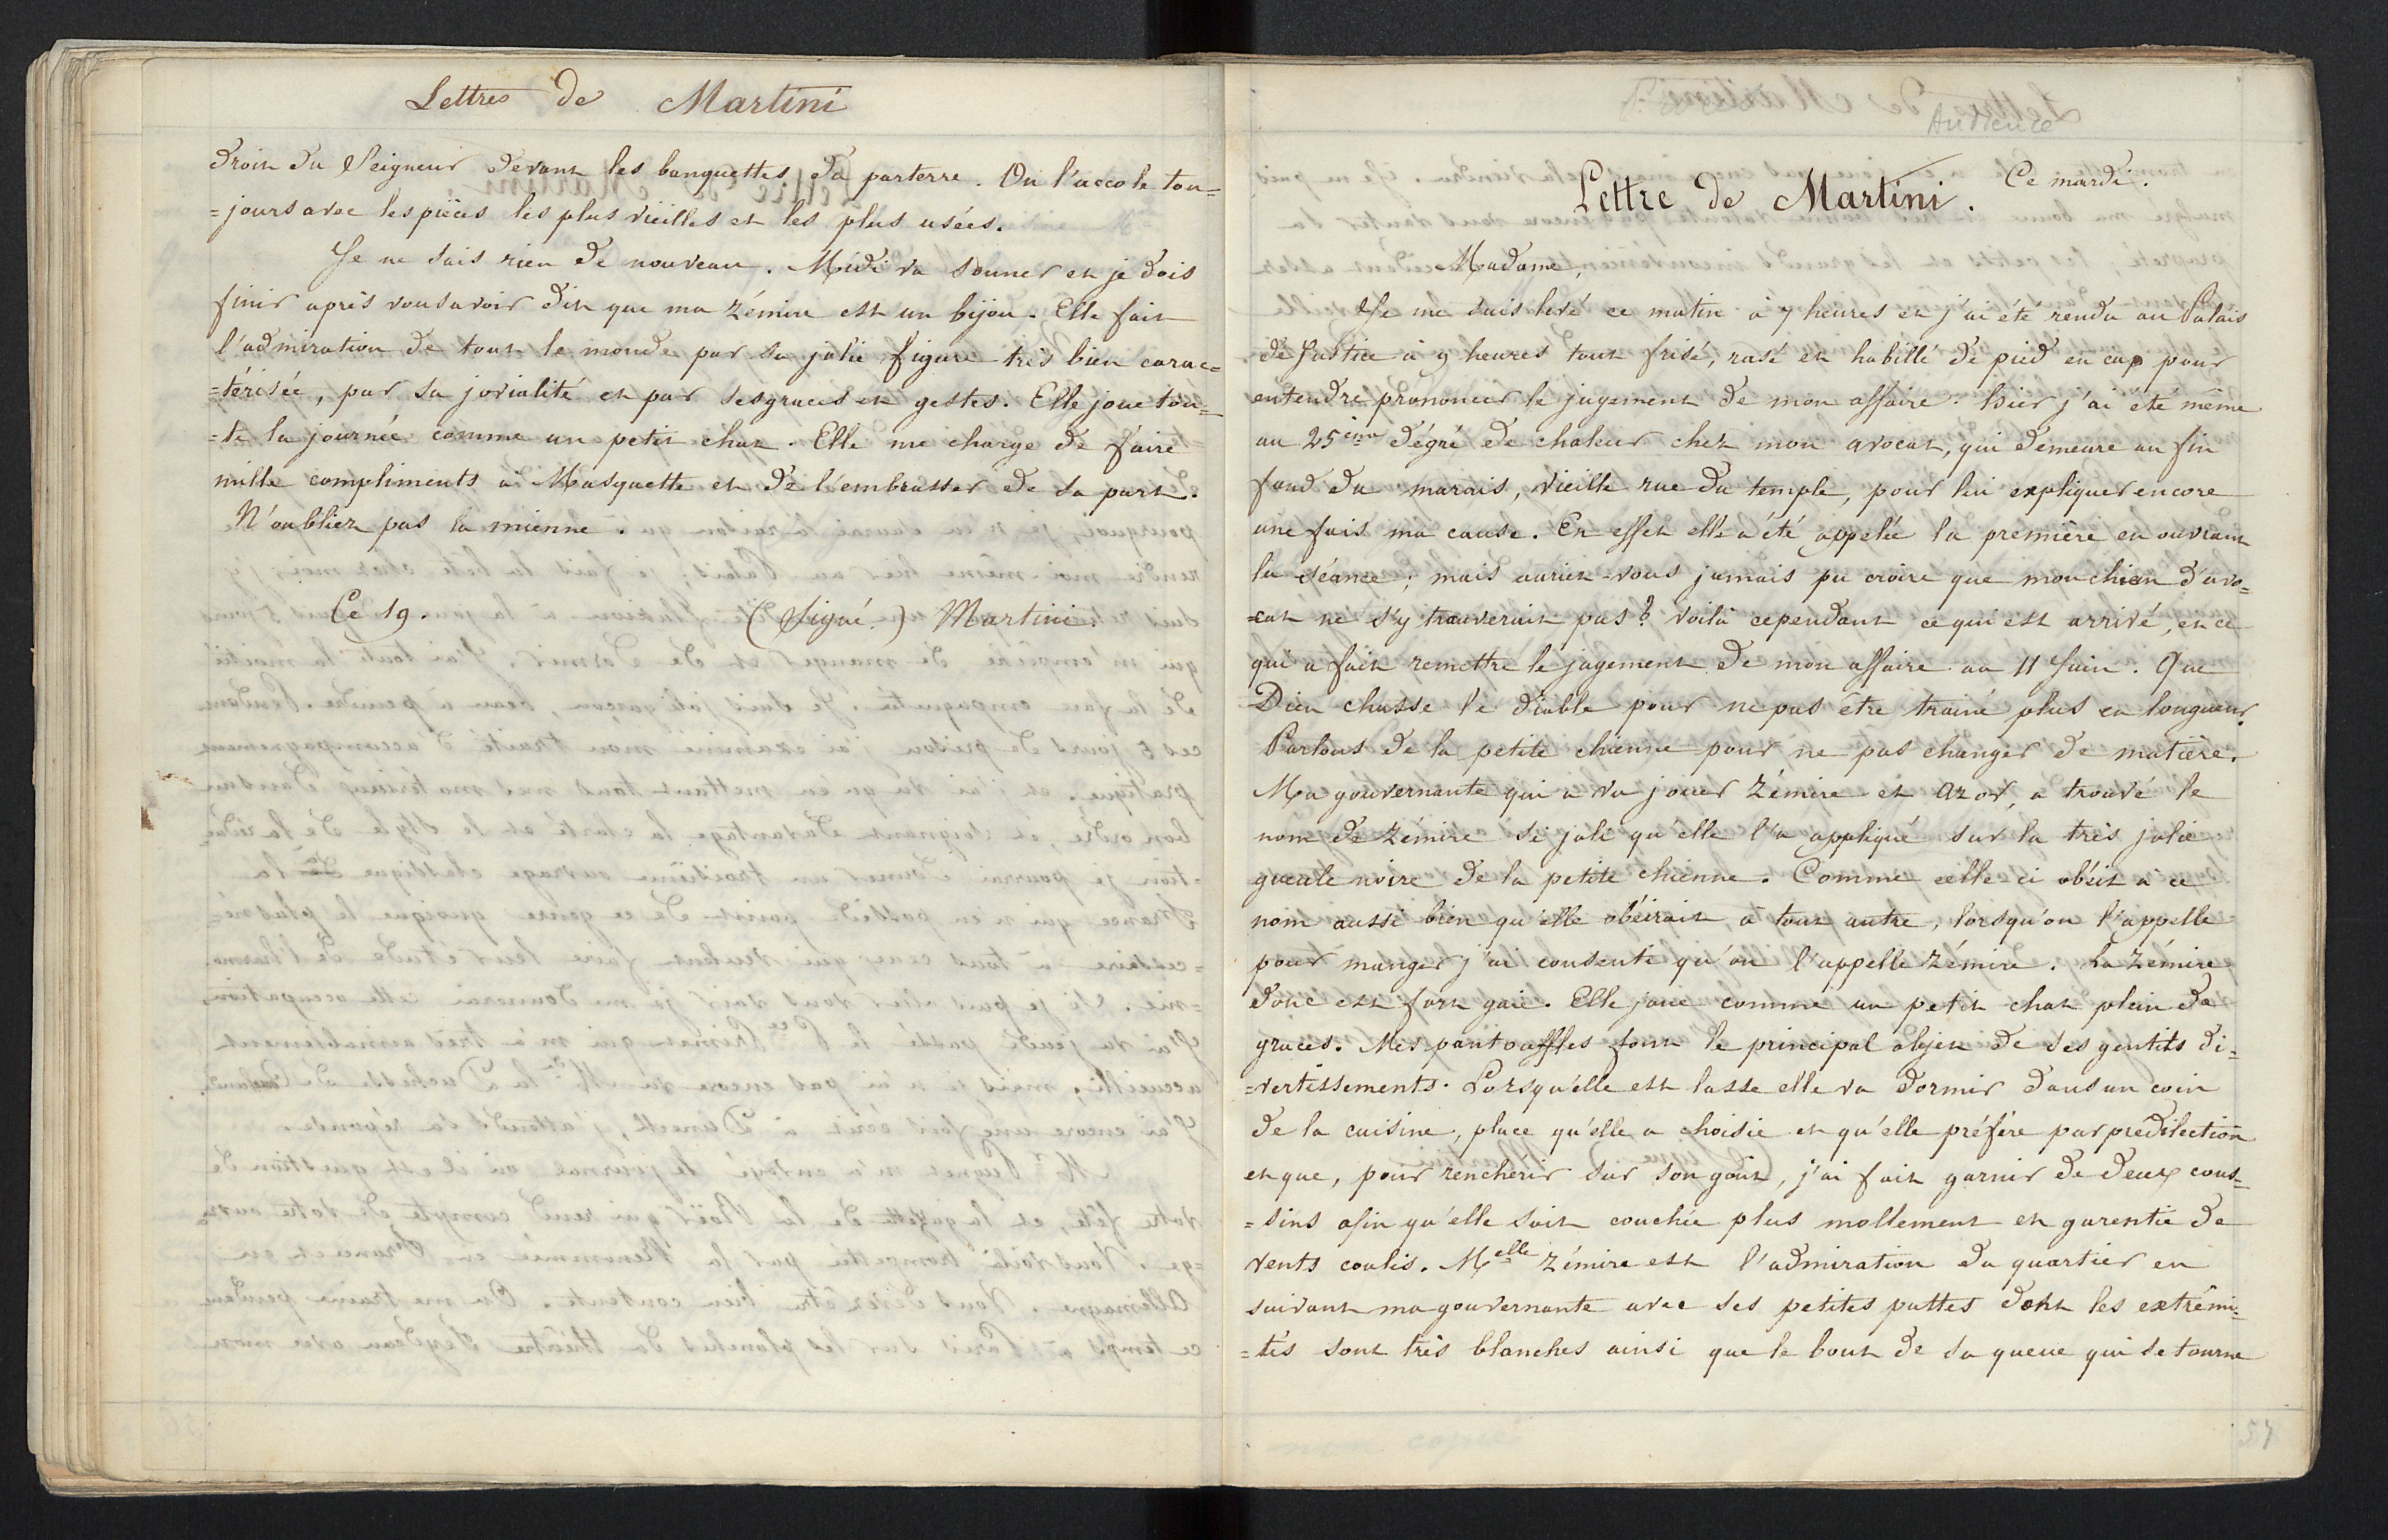 Lettres de Martini
droit du Seigneur devant les banquettes du parterre. On l'accole tou=
=jours avec les pièces les plus vieilles et les plus usées.
Je ne sais rien de nouveau. Midi va sonner et je dois
finir après vous avoir dit que ma Zémire est un bijou. Elle fait
l'admiration de tout le monde par sa jolie figure très bien carac=
=térisée, par sa jovialité et par ses graces et gestes. Elle joue tou=
=te la journée comme un petit chat. Elle me charge de faire
mille compliments à Masquette et de l'embrasser de sa part.
N'oubliez pas la mienne.
Ce 19. (Signé.) Martini.
Audience
Lettre de Martini. Ce mardi.
Madame,
Je me suis levé ce matin à 7 heures et j'ai été rendu au Palais
de Justice à 9 heures tout frisé, rasé et habillé de pied en cap pour
entendre prononcer le jugement de mon affaire. Hier j'ai été même
au 25eme dégré de chaleur chez mon avocat, qui demeure au fin
fond du marais, vieille rue du temple, pour lui expliquer encore
une fois ma cause. En effet elle a été appelée la première en ouvrant
la séance; mais auriez-vous jamais pu croire que mon chien d'avo=
=cat ne s'y trouverait pas? Voilà cependant ce qui est arrivé, et ce
qui a fait remettre le jugement de mon affaire au 11 Juin. Que
Dieu chasse le diable pour ne pas etre trainé plus en longueur.
Parlons de la petite chienne pour ne pas changer de matière.
Ma gouvernante qui a vu jouer Zémire et Azor, a trouvé le
nom de Zémire si joli qu'elle l'a appliqué sur la très jolie
gueule noire de la petite chienne. Comme celle-ci obéit à ce
nom aussi bien qu'elle obéirait à tout autre, lorsqu'on l'appelle
pour manger j'ai consenti qu'on l'appelle Zémire. La Zémire
donc est fort gaie. Elle joue comme un petit chat plein de
graces. Mes pantouffles font le principal objet de ses gentils di=
=vertissements. Lorsqu'elle est lasse elle va dormir dans un coin
de la cuisine, place qu'elle a choisie et qu'elle préfère par prédilection
et que, pour rencherir sur son goût, j'ai fait garnir de deux cous=
=sins afin qu'elle soit couchée plus mollement et garentie de
vents coulis. Melle Zémire est l'admiration du quartier en
suivant ma gouvernante avec ses petites pattes dont les extrémi=
=tés sont très blanches ainsi que le bout de sa queue qui se tourne
57